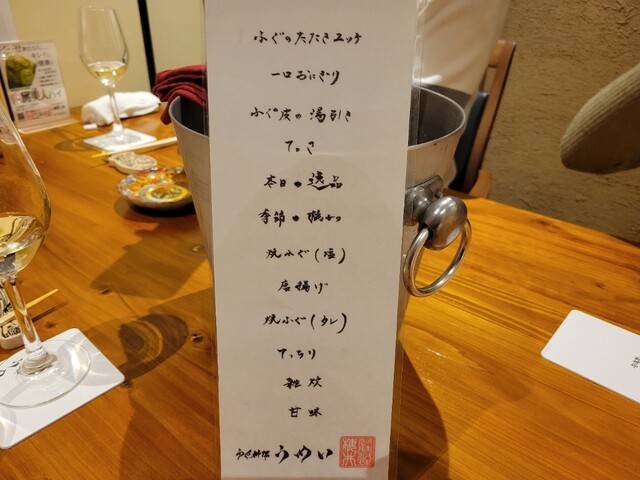 ふぐのたたきユッケ
一口おにぎり
ふぐ皮の湯引き
てっさ
本日の逸品
季節の
焼ふぐ(塩)
唐揚げ
焼ふぐ(タレ)
てっちり
雑炊
甘味
うめい